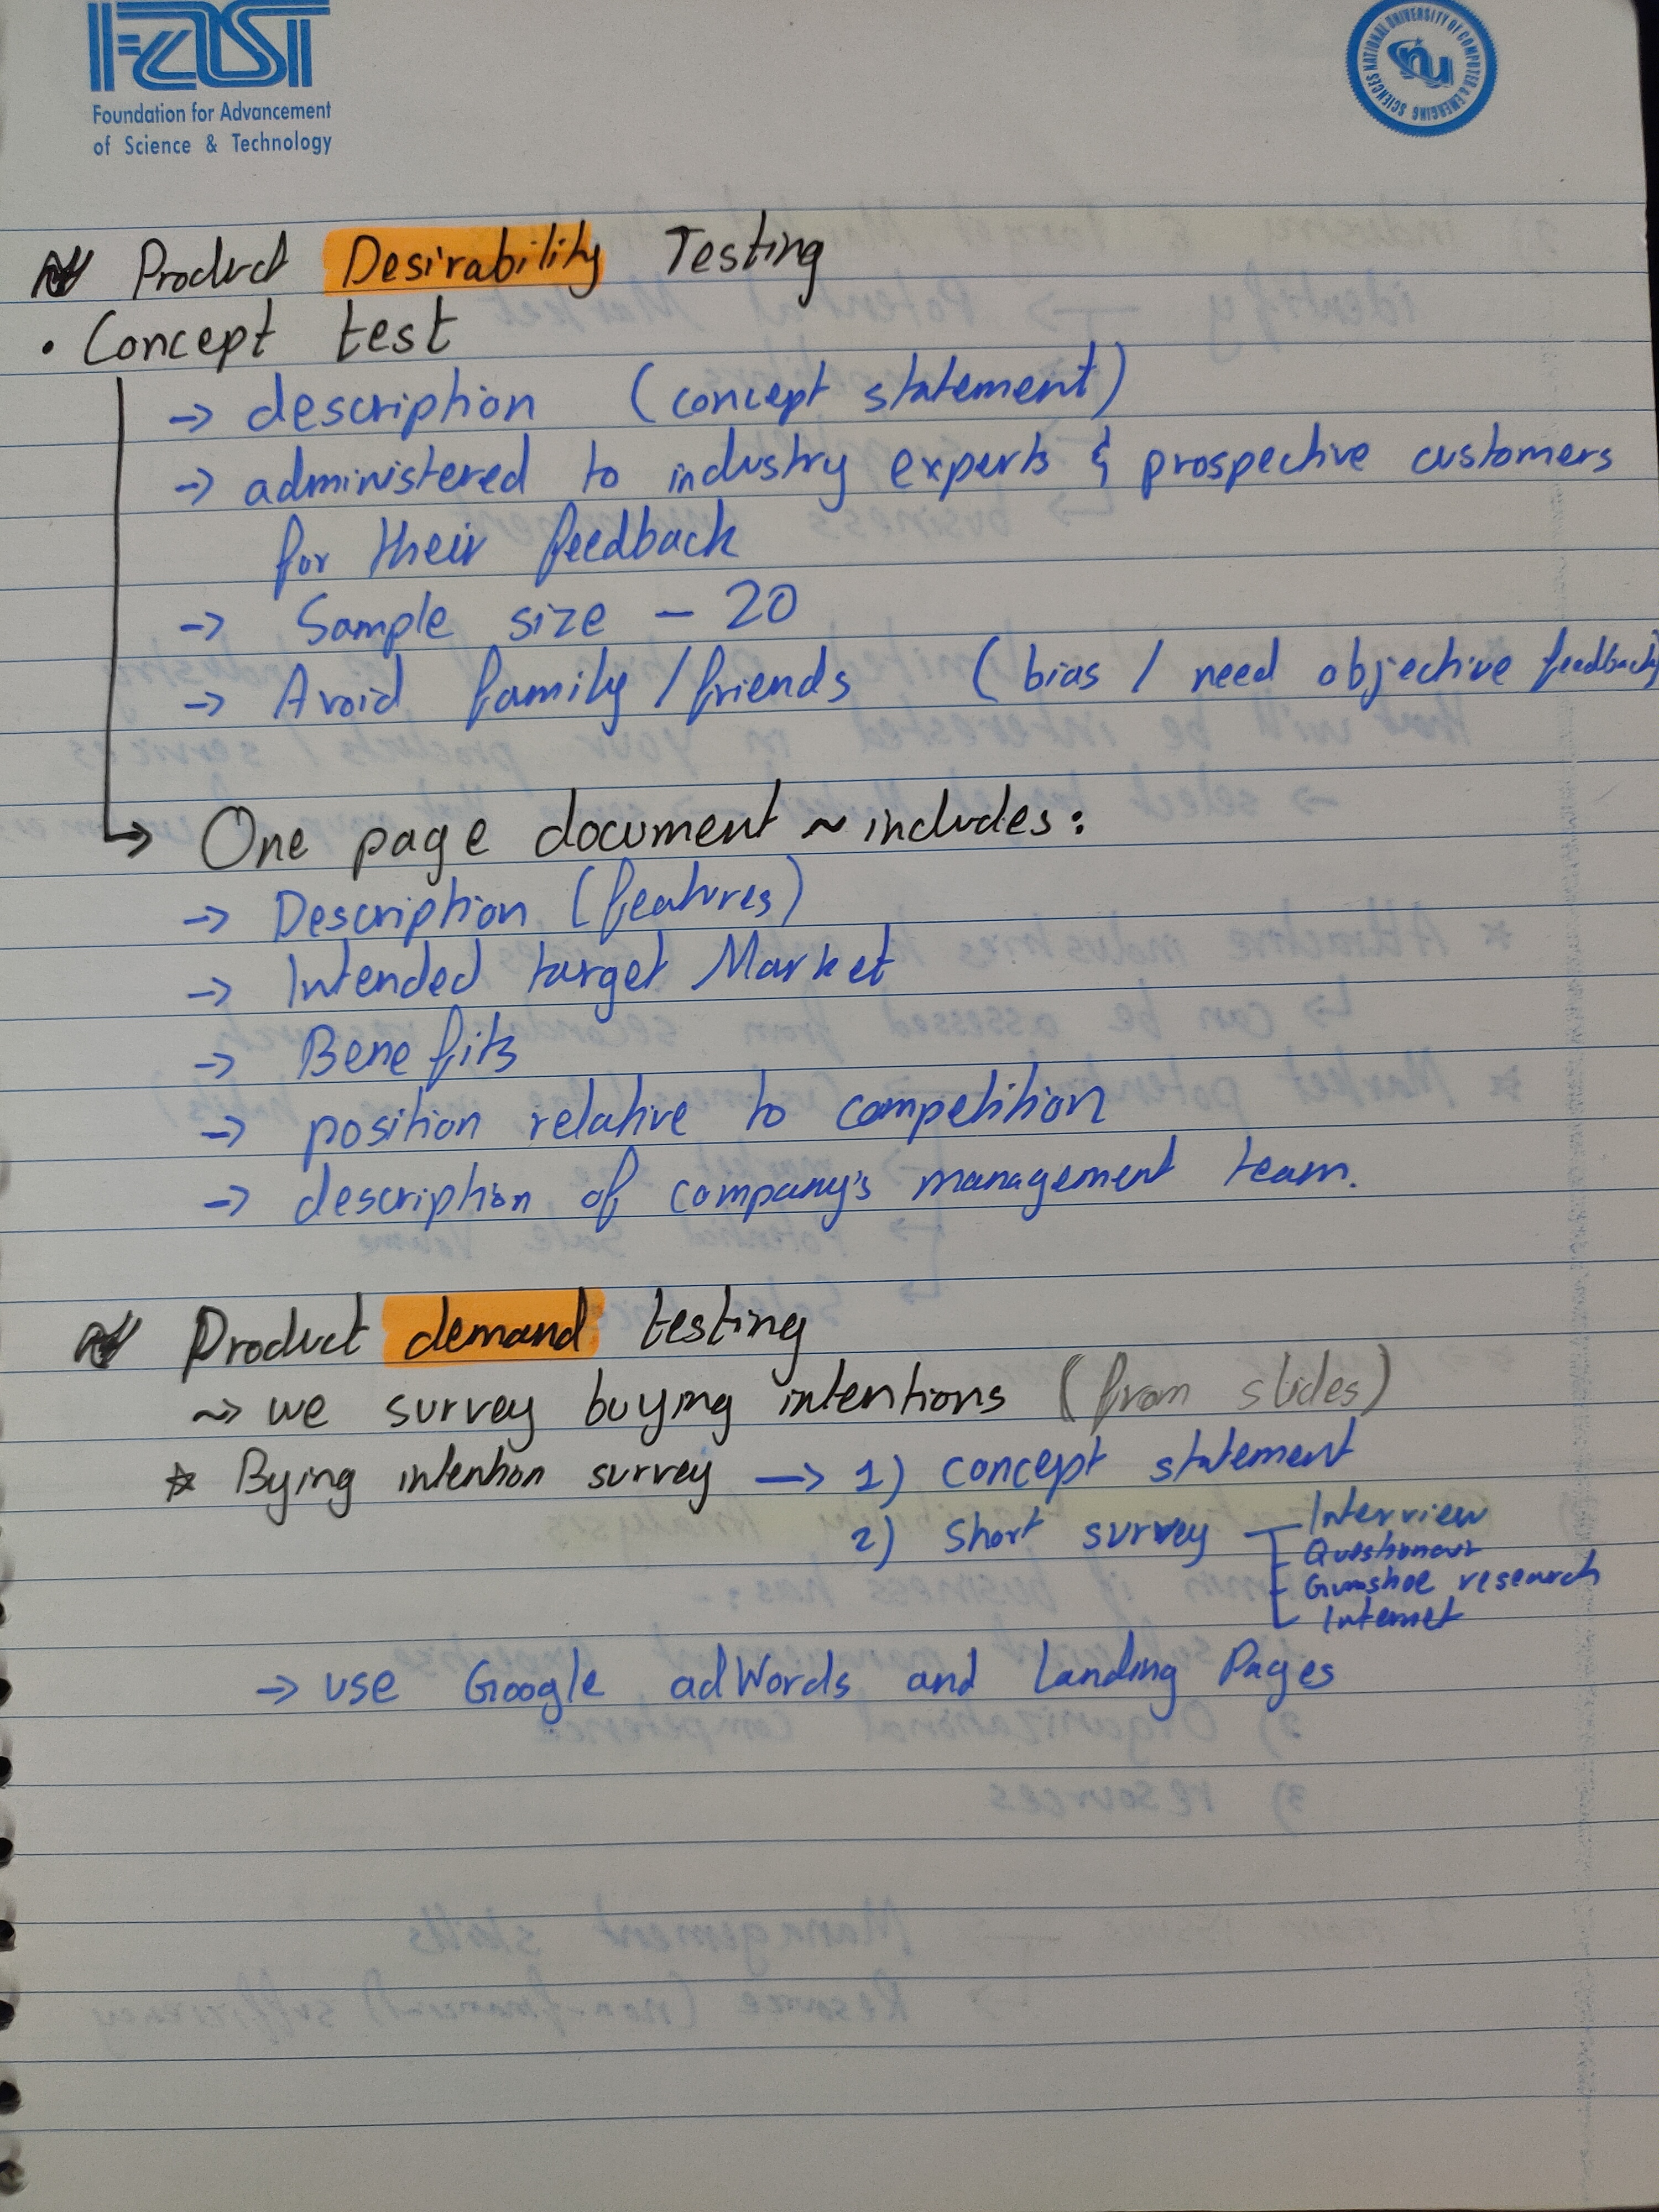 FAST
Foundation for Advancement
of Science & Technology
NATIONAL UNIVERSITY OF COMPUTER & EMERGING SCIENCES
nu
Product Desirability Testing
• Concept test
→ description (concept statement)
→ administered to industry experts & prospective customers
for their feedback
→ Sample size – 20
→ Avoid family/friends (bias / need objective feedback)
↳ One page document ~ includes:
→ Description (features)
→ Intended target Market
→ Benefits
→ position relative to competition
→ description of company's management team.
Product demand testing
~> we survey buying intentions (from slides)
☆ Bying intention survey → 1) concept statement
2) Short survey
Interview
Gumshoe research
Internet
→ use Google adWords and Landing Pages